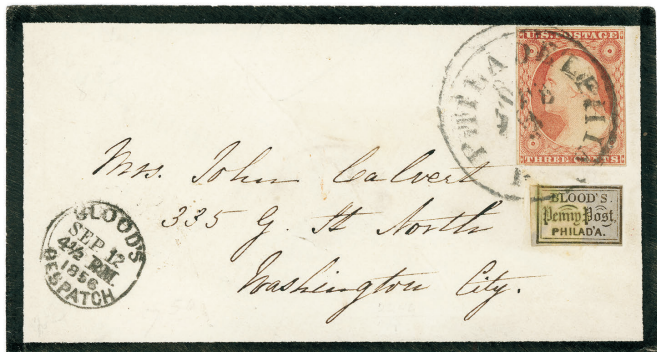 U.S. POSTAGE
THREE CENTS
PHILADELPHIA
BLOOD'S
Penny Post
PHILAD'A.
Mrs. John Calvert
335 G. St North
Washington City.
BLOOD'S
SEP. 12
4½ P.M.
1856
DESPATCH